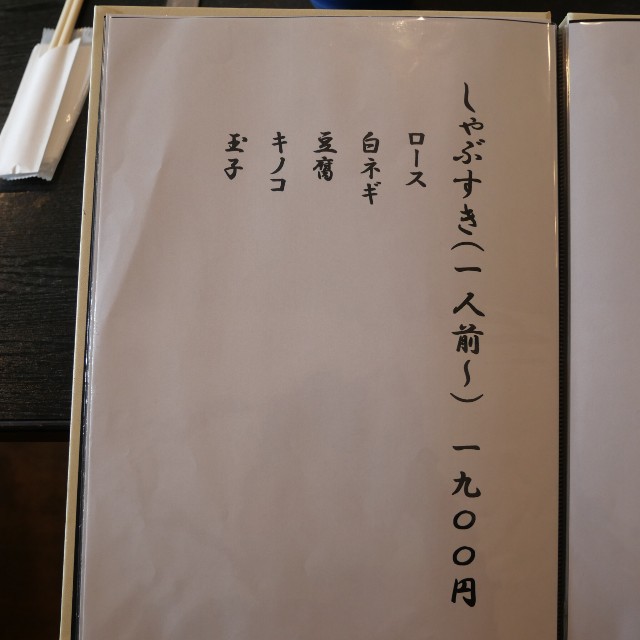 しゃぶすき（一人前〜） 一九〇〇円
ロース
白ネギ
豆腐
キノコ
玉子